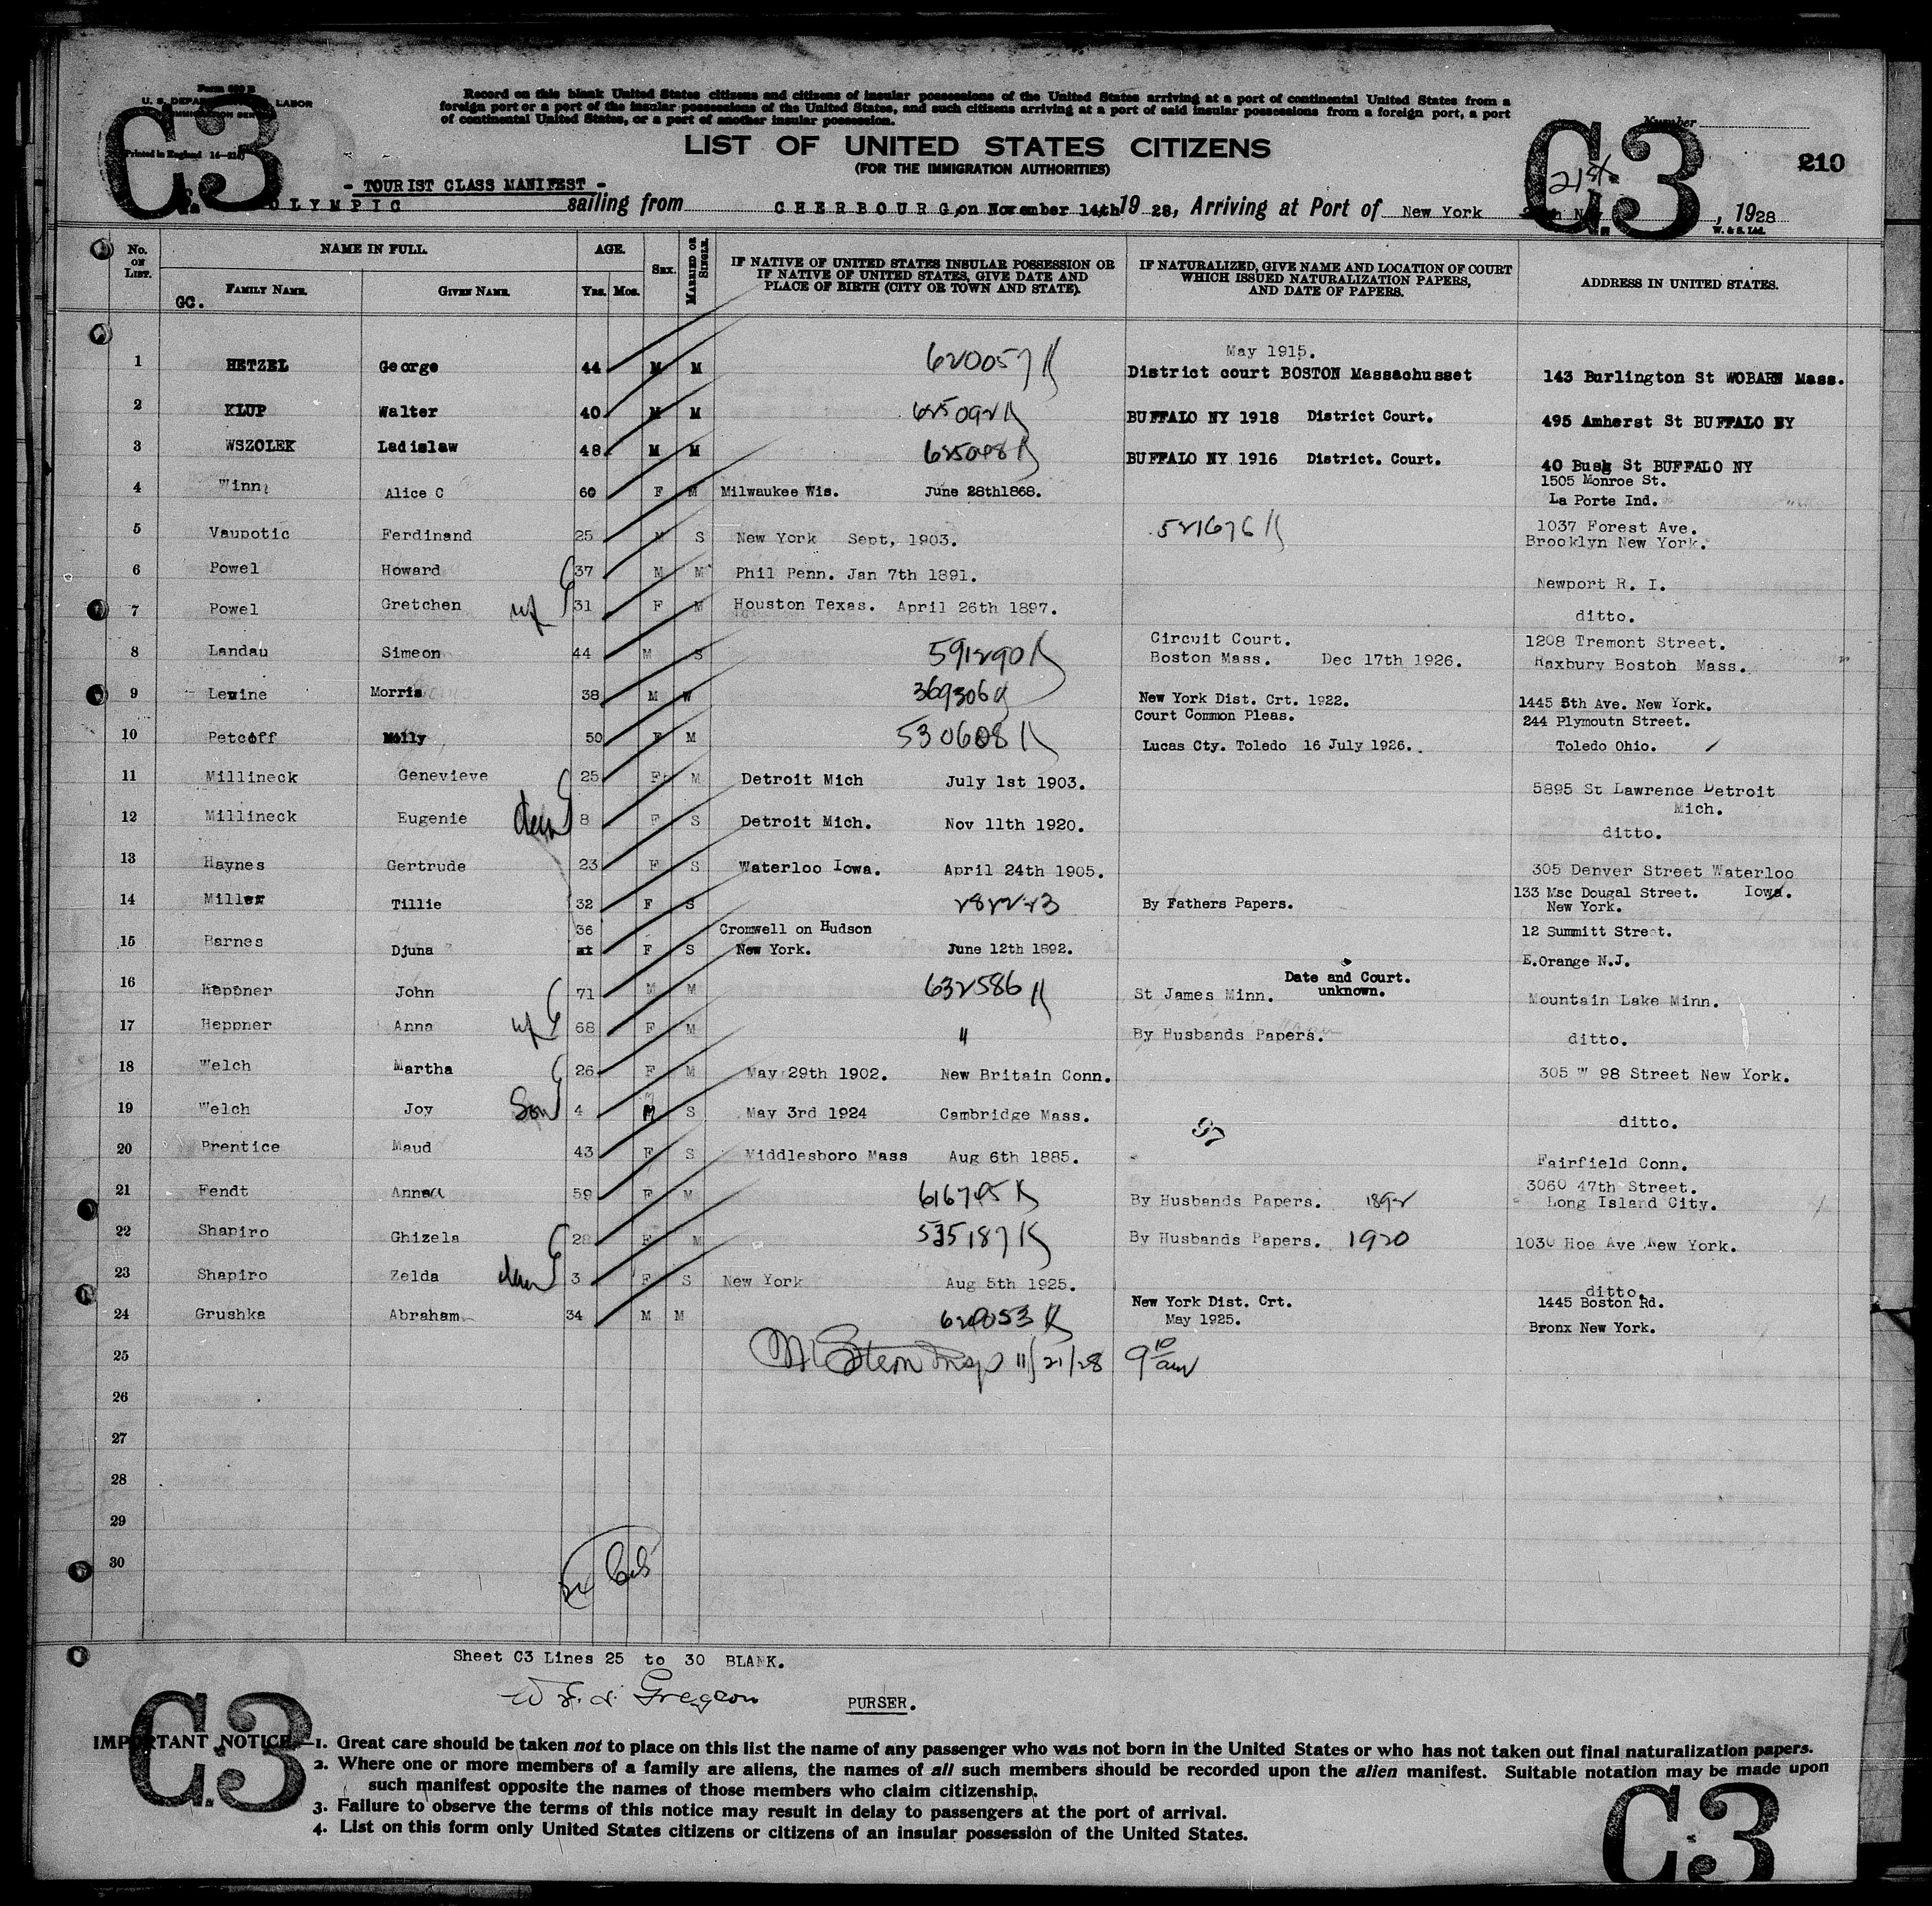 Form 630 B
U. S. DEPARTMENT LABOR
IMMIGRATION SERVICE
Printed in England
C3
C3
Record on this blank United States citizens and citizens of insular possessions of the United States arriving at a port of continental United States from a
foreign port or a port of the insular possessions of the United States, and such citizens arriving at a port of said insular possessions from a foreign port, a port
of continental United States, or a port of another insular possession.
Number
210
LIST OF UNITED STATES CITIZENS
(FOR THE IMMIGRATION AUTHORITIES)
- TOURIST CLASS MANIFEST -
OLYMPIC sailing from CHERBOURG, on November 14th 1928, Arriving at Port of New York 21st Nov , 1928
W. & S. Ltd.
No. ON LIST. NAME IN FULL. AGE. SEX. MARRIED OR SINGLE. IF NATIVE OF UNITED STATES INSULAR POSSESSION OR IF NATIVE OF UNITED STATES, GIVE DATE AND PLACE OF BIRTH (CITY OR TOWN AND STATE). IF NATURALIZED, GIVE NAME AND LOCATION OF COURT WHICH ISSUED NATURALIZATION PAPERS, AND DATE OF PAPERS. ADDRESS IN UNITED STATES.
GC. FAMILY NAME. GIVEN NAME. Yrs. Mos.
1 HETZEL George 44 M M 620057 May 1915. District court BOSTON Massachusset 143 Burlington St WOBARN Mass.
2 KLUP Walter 40 M M 625092 BUFFALO NY 1918 District Court. 495 Amherst St BUFFALO NY
3 WSZOLEK Ladislaw 48 M M 625098 BUFFALO NY 1916 District. Court. 40 Bush St BUFFALO NY
4 Winn Alice C 60 F M Milwaukee Wis. June 28th1868. 1505 Monroe St. La Porte Ind.
5 Vaupotic Ferdinand 25 M S New York Sept, 1903. 521676 1037 Forest Ave. Brooklyn New York.
6 Powel Howard 37 M M Phil Penn. Jan 7th 1891. Newport R. I.
7 Powel Gretchen wf 31 F M Houston Texas. April 26th 1897. ditto.
8 Landau Simeon 44 M S 591290 Circuit Court. Boston Mass. Dec 17th 1926. 1208 Tremont Street. Raxbury Boston Mass.
9 Lewine Morris 38 M W 369306 New York Dist. Crt. 1922. 1445 5th Ave. New York.
10 Petcoff Molly 50 F M 530608 Court Common Pleas. Lucas Cty. Toledo 16 July 1926. 244 Plymoutn Street. Toledo Ohio.
11 Millineck Genevieve 25 F M Detroit Mich July 1st 1903. 5895 St Lawrence Detroit Mich.
12 Millineck Eugenie dau 8 F S Detroit Mich. Nov 11th 1920. ditto.
13 Haynes Gertrude 23 F S Waterloo Iowa. April 24th 1905. 305 Denver Street Waterloo Iowa.
14 Miller Tillie 32 F S By Fathers Papers. 133 Msc Dougal Street. New York.
15 Barnes Djuna 36 F S Cromwell on Hudson New York. June 12th 1892. 12 Summitt Street. E.Orange N.J.
16 Heppner John 71 M M 632586 St James Minn. Date and Court. unknown. Mountain Lake Minn.
17 Heppner Anna wf 68 F M " By Husbands Papers. ditto.
18 Welch Martha 26 F M May 29th 1902. New Britain Conn. 305 W 98 Street New York.
19 Welch Joy Son 4 M S May 3rd 1924 Cambridge Mass. ditto.
97
20 Prentice Maud 43 F S Middlesboro Mass Aug 6th 1885. Fairfield Conn.
21 Fendt Anna 59 F M 616745 By Husbands Papers. 1892 3060 47th Street. Long Island City.
22 Shapiro Ghizela 28 F M 535187 By Husbands Papers. 1920 1030 Hoe Ave New York.
23 Shapiro Zelda dau 3 F S New York Aug 5th 1925. ditto.
24 Grushka Abraham 34 M M 620053 New York Dist. Crt. May 1925. 1445 Boston Rd. Bronx New York.
25 Stern Insp 11/21/28 9 10 am
26
27
28
29
30
24
Sheet C3 Lines 25 to 30 BLANK.
PURSER.
C3
IMPORTANT NOTICE.—1. Great care should be taken not to place on this list the name of any passenger who was not born in the United States or who has not taken out final naturalization papers.
2. Where one or more members of a family are aliens, the names of all such members should be recorded upon the alien manifest. Suitable notation may be made upon
such manifest opposite the names of those members who claim citizenship.
3. Failure to observe the terms of this notice may result in delay to passengers at the port of arrival.
4. List on this form only United States citizens or citizens of an insular possession of the United States.
C3